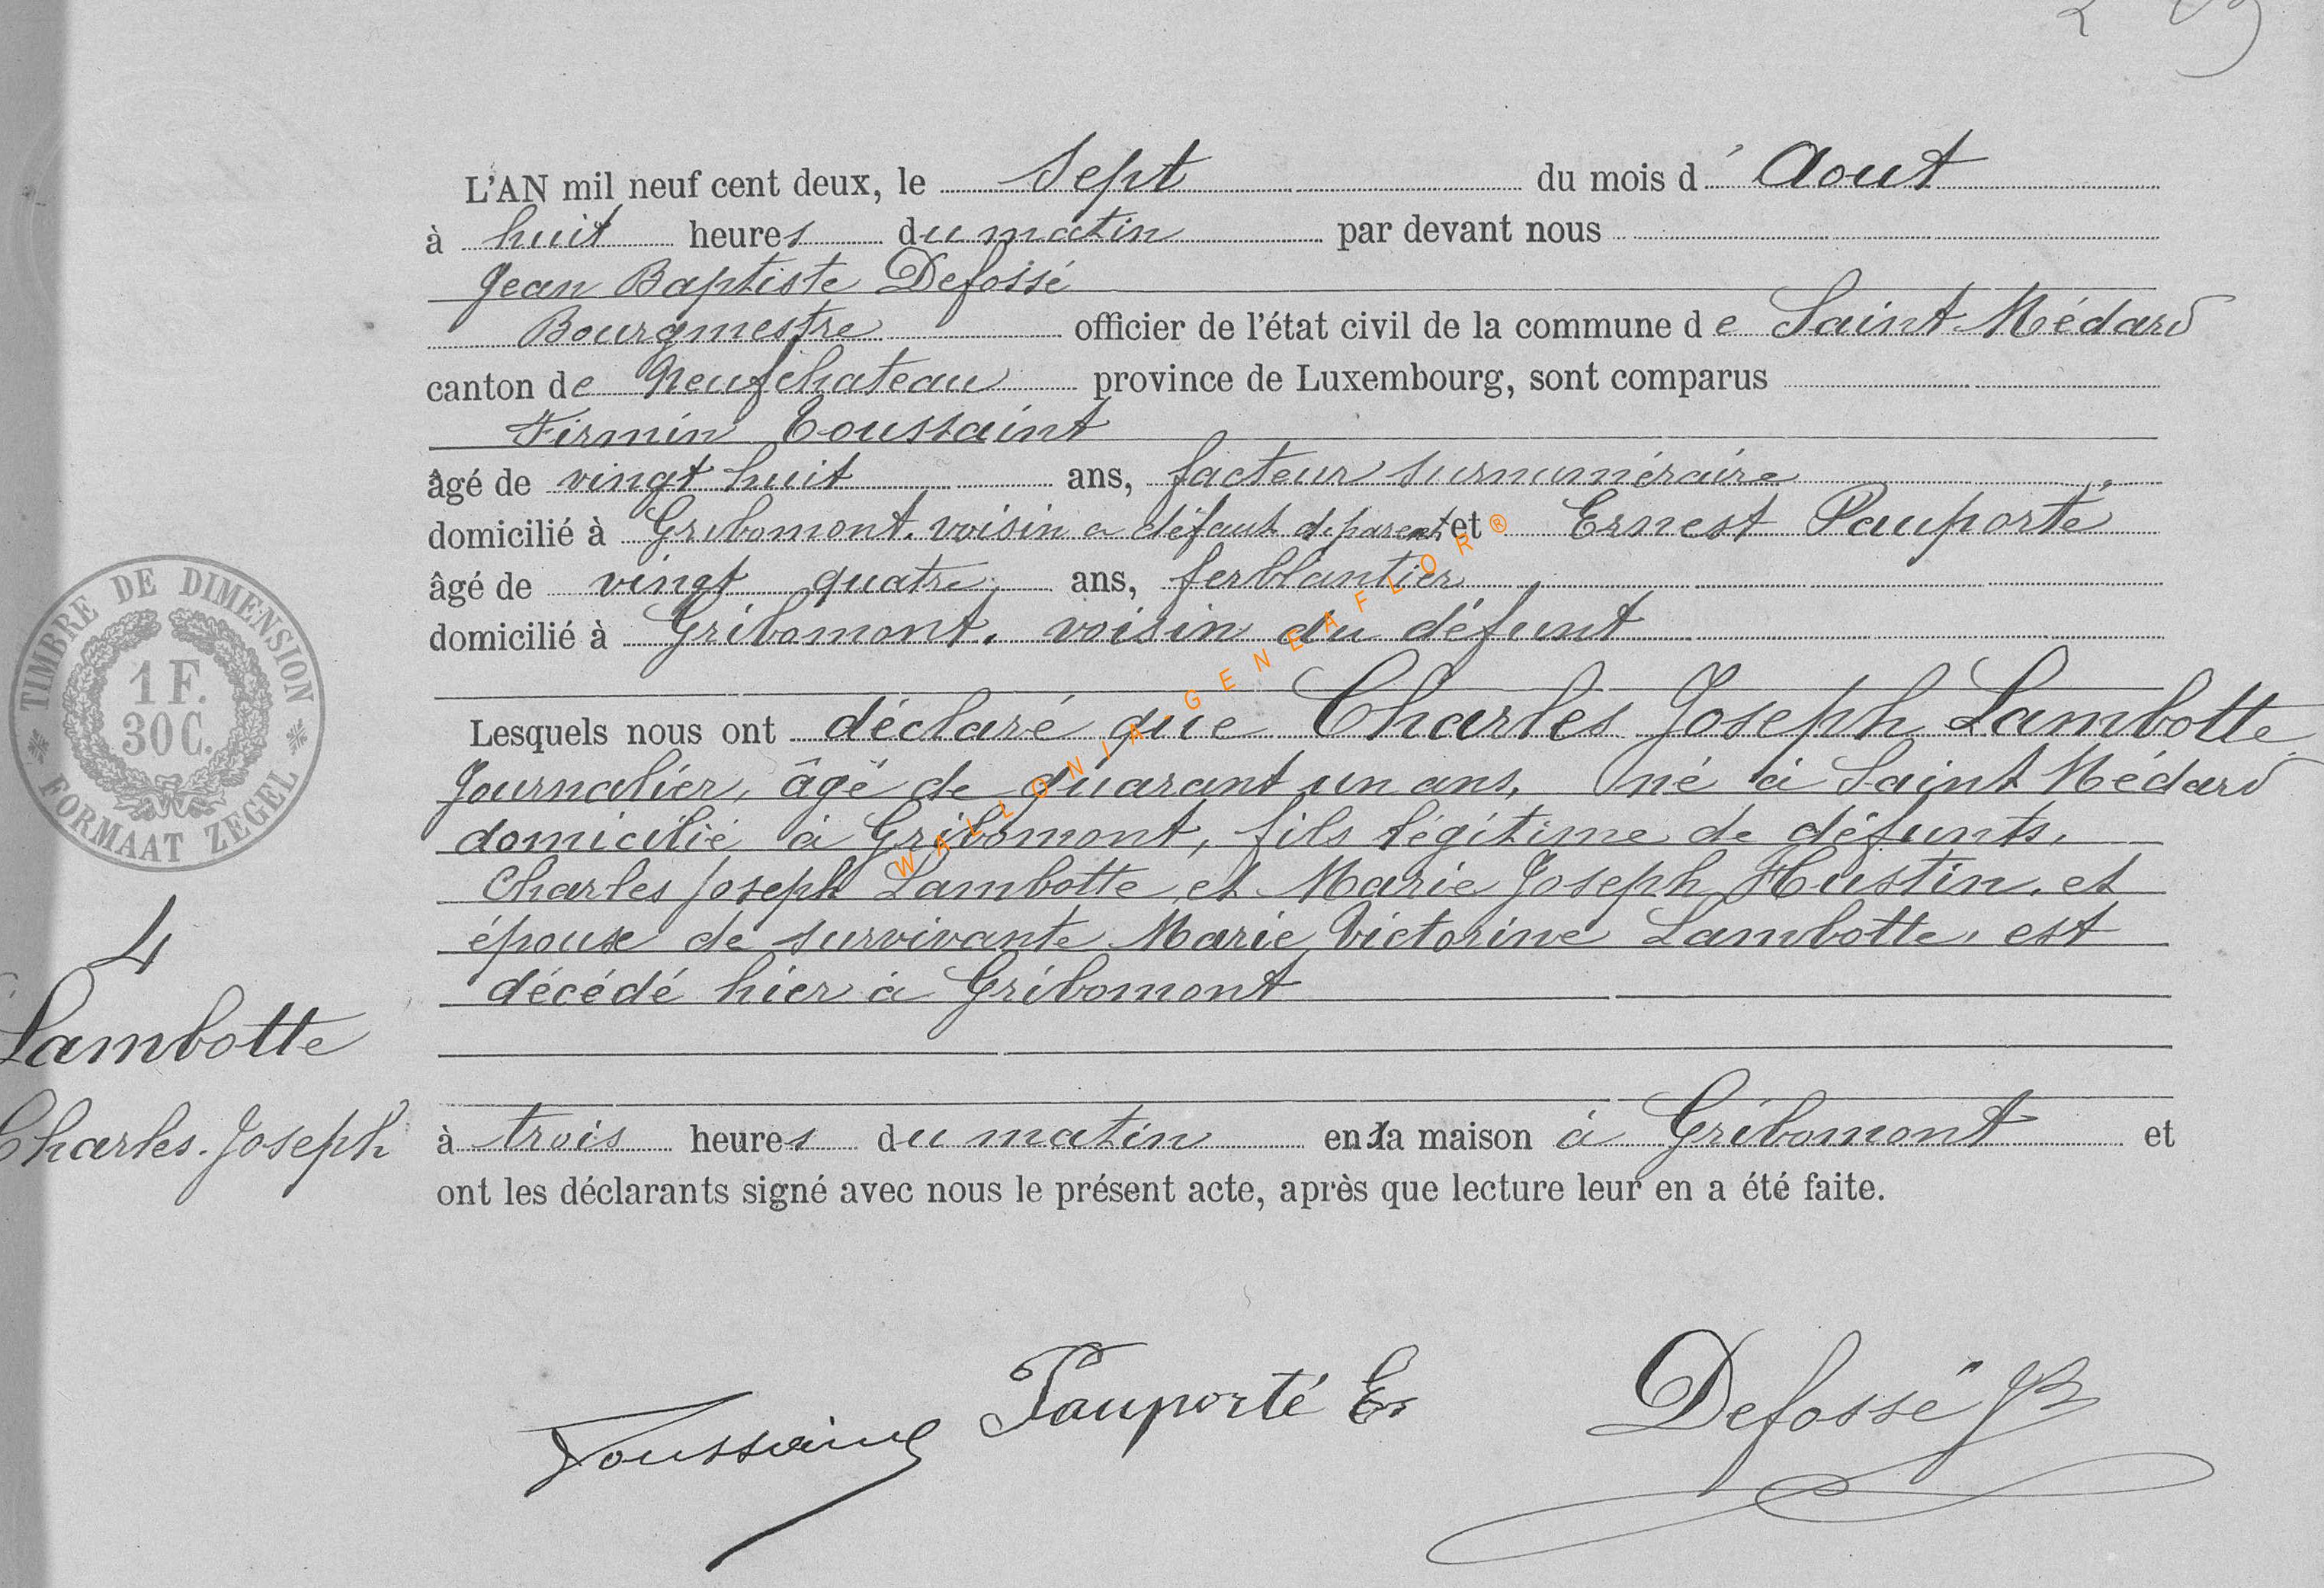 L'AN mil neuf cent deux, le sept du mois d' Aout
à huit heures du matin par devant nous
Jean Baptiste Defossé
Bourgmestre officier de l'état civil de la commune de Saint Médard
canton de Neufchateau province de Luxembourg, sont comparus
Firmin Toussaint
âgé de vingt huit ans, facteur surnuméraire,
domicilié à Gribomont, voisin a défaut de parent et Ernest Pauporté
âgé de vingt quatre ans, ferblantier
domicilié à Gribomont, voisin du défunt
Lesquels nous ont déclaré que Charles Joseph Lambotte
Journalier, âgé de quarant un ans, né à Saint Médard
domicilié à Gribomont, fils légitime de défunts,
Charles Joseph Lambotte et Marie Joseph Hustin, et
époux de survivante Marie Victorine Lambotte, est
décédé hier à Gribomont
à trois heures du matin en la maison à Gribomont et
ont les déclarants signé avec nous le présent acte, après que lecture leur en a été faite.
4
Lambotte
Charles Joseph
TIMBRE DE DIMENSION
1 F.
30 C.
FORMAAT ZEGEL
WALLONIA-GENEAFLOR®
Toussaint Pauporté Er Defossé JB